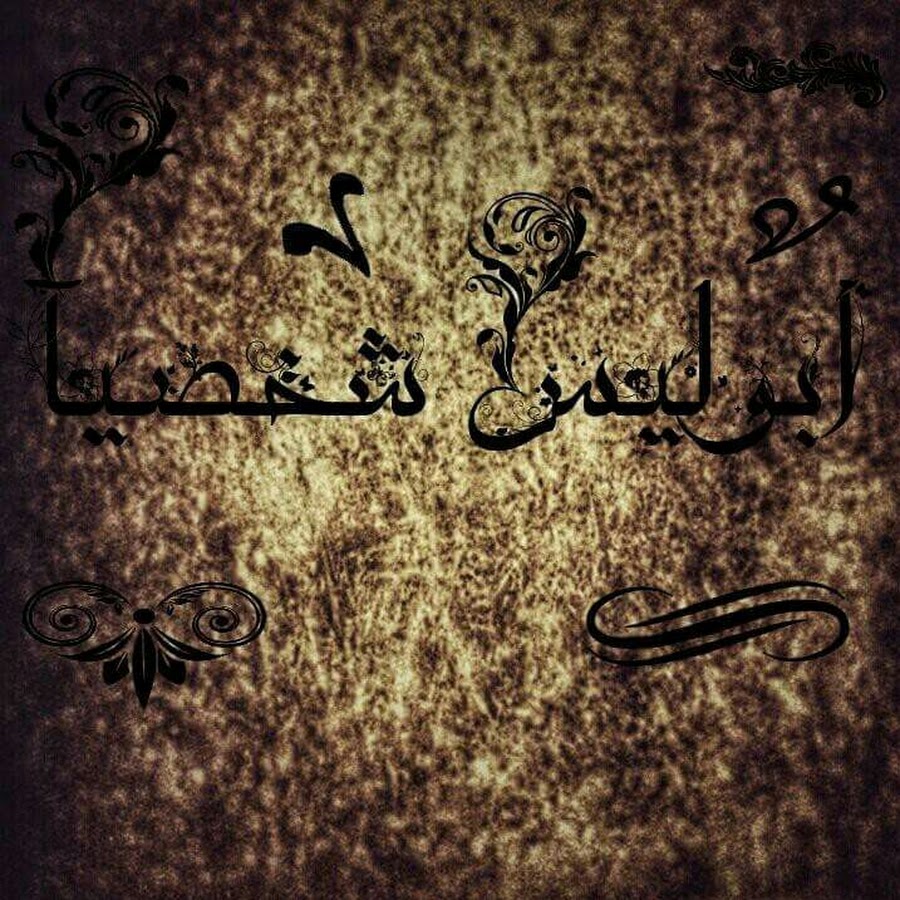 ابوليس شخصياً